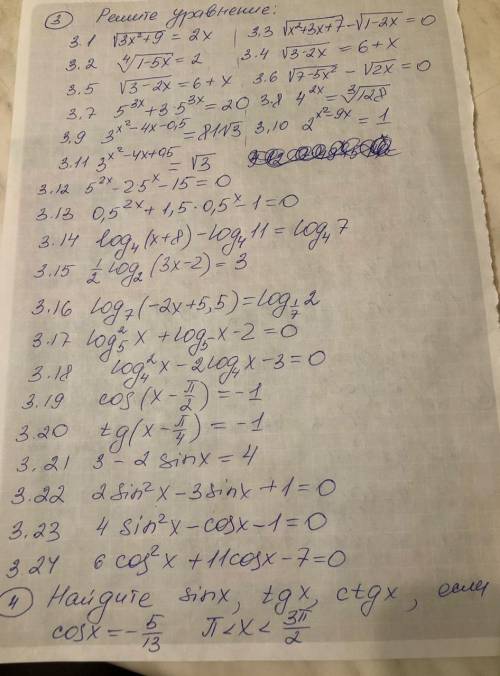 ③ Решите уравнение:
3.1 √(3x²+9) = 2x 3.3 √(x²+3x+7) - √(1-2x) = 0
3.2 ⁴√(1-5x) = 2 3.4 √(3-2x) = 6+x
3.5 √(3-2x) = 6+x 3.6 √(7-5x²) - √(2x) = 0
3.7 5^(3x) + 3·5^(3x) = 20 3.8 4^(2x) = ³√128
3.9 3^(x²-4x-0,5) = 81√3 3.10 2^(x²-9x) = 1
3.11 3^(x²-4x+0,5) = √3
3.12 5^(2x) - 2·5^x - 15 = 0
3.13 0,5^(2x) + 1,5·0,5^x - 1 = 0
3.14 log₄(x+8) - log₄11 = log₄7
3.15 1/2 log₂(3x-2) = 3
3.16 log₇(-2x+5,5) = log_(1/7) 2
3.17 log₅²x + log₅x - 2 = 0
3.18 log₄²x - 2log₄x - 3 = 0
3.19 cos(x - π/2) = -1
3.20 tg(x - π/4) = -1
3.21 3 - 2 sinx = 4
3.22 2sin²x - 3sinx + 1 = 0
3.23 4 sin²x - cosx - 1 = 0
3.24 6cos²x + 11cosx - 7 = 0
④ Найдите sinx, tgx, ctgx, если
cosx = -5/13 π < x < 3π/2